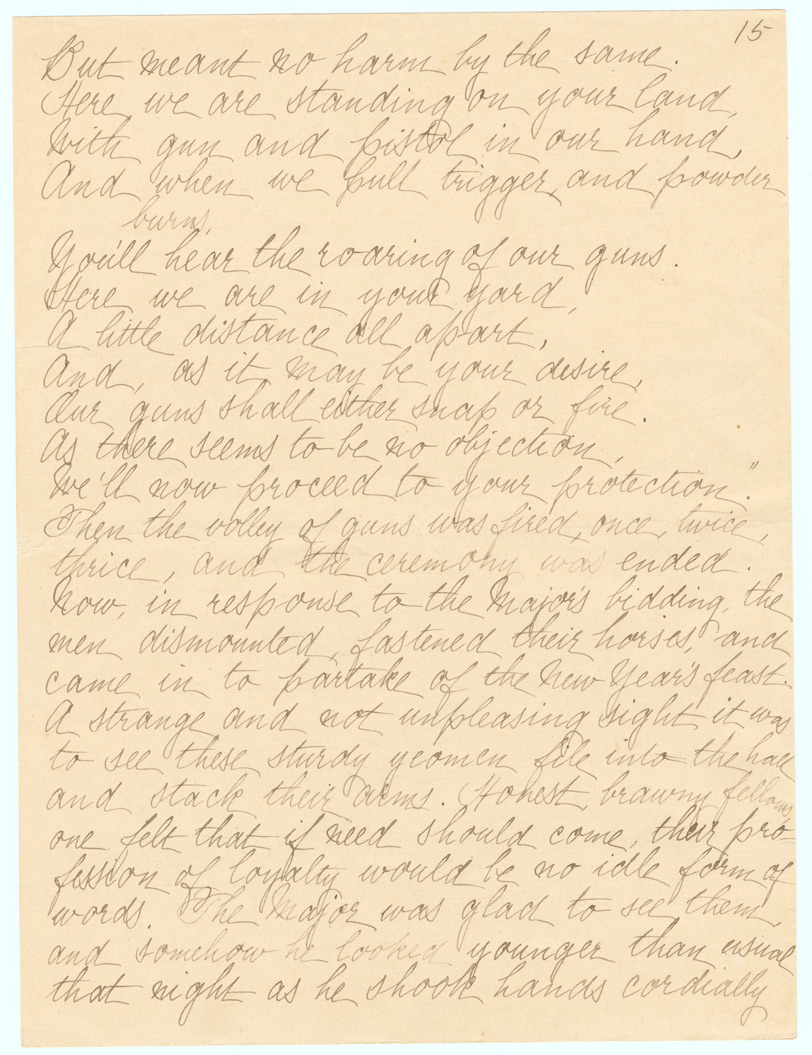 15
But meant no harm by the same.
Here we are standing on your land,
With gun and pistol in our hand,
And when we pull trigger, and powder
burns,
You'll hear the roaring of our guns.
Here we are in your yard,
A little distance all apart,
And, as it may be your desire,
Our guns shall either snap or fire.
As there seems to be no objection,
We'll now proceed to your protection."
Then the volley of guns was fired, once, twice,
thrice, and the ceremony was ended.
Now, in response to the Major's bidding, the
men dismounted, fastened their horses, and
came in to partake of the New Year's feast.
A strange and not unpleasing sight it was
to see these sturdy yeomen file into the hall
and stack their arms. Honest, brawny fellows,
one felt that if need should come, their pro-
fession of loyalty would be no idle form of
words. The Major was glad to see them,
and somehow he looked younger than usual
that night as he shook hands cordially